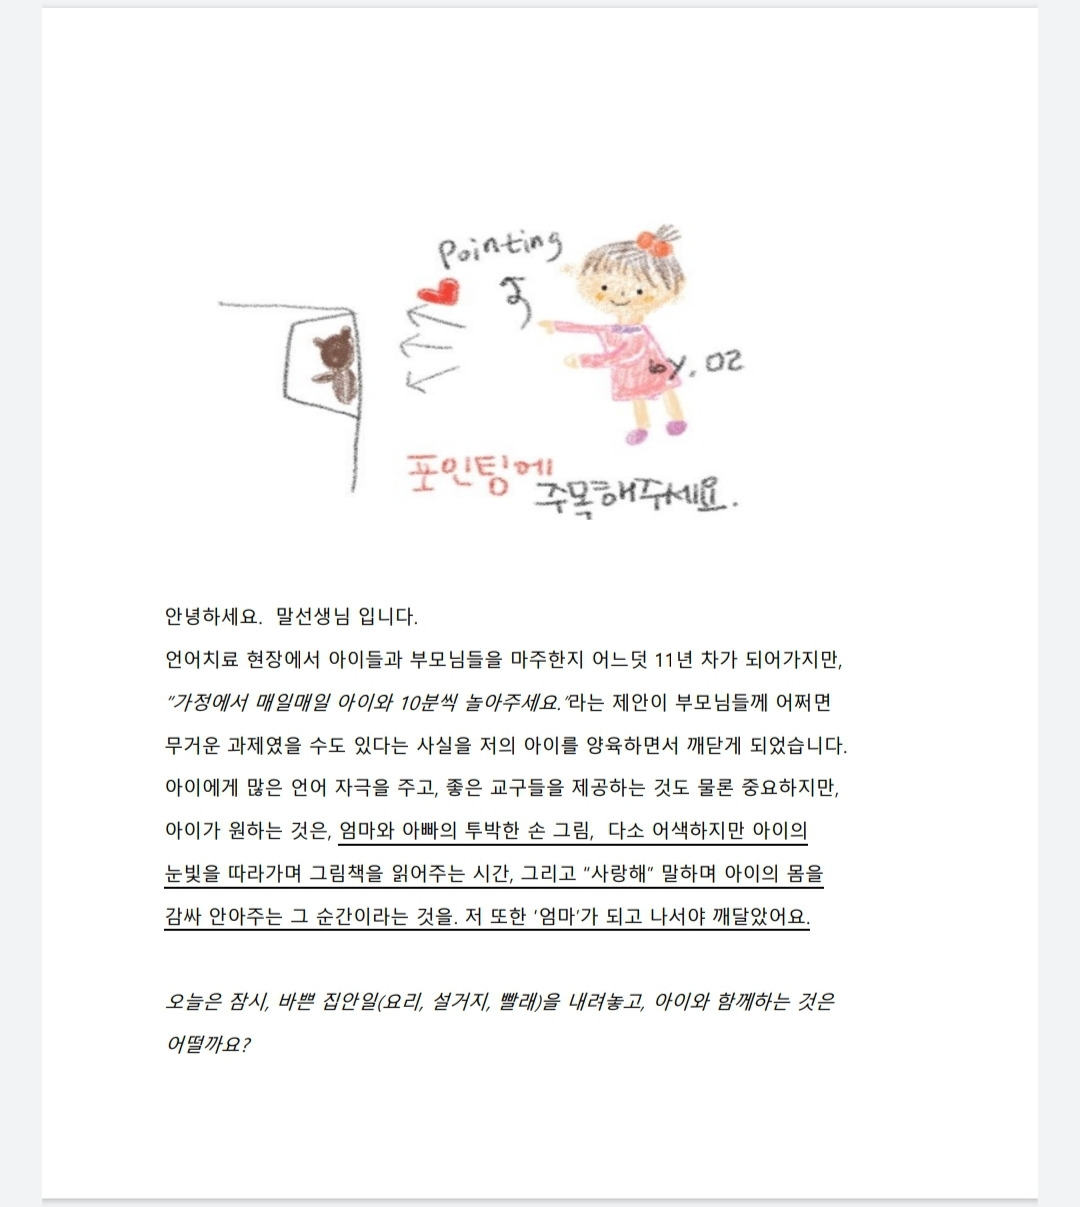 Pointing
by. oz
포인팅에
주목해주세요.
안녕하세요. 말선생님 입니다.
언어치료 현장에서 아이들과 부모님들을 마주한지 어느덧 11년 차가 되어가지만,
“가정에서 매일매일 아이와 10분씩 놀아주세요.”라는 제안이 부모님들께 어쩌면
무거운 과제였을 수도 있다는 사실을 저의 아이를 양육하면서 깨닫게 되었습니다.
아이에게 많은 언어 자극을 주고, 좋은 교구들을 제공하는 것도 물론 중요하지만,
아이가 원하는 것은, 엄마와 아빠의 투박한 손 그림, 다소 어색하지만 아이의
눈빛을 따라가며 그림책을 읽어주는 시간, 그리고 “사랑해” 말하며 아이의 몸을
감싸 안아주는 그 순간이라는 것을. 저 또한 ‘엄마’가 되고 나서야 깨달았어요.
오늘은 잠시, 바쁜 집안일(요리, 설거지, 빨래)을 내려놓고, 아이와 함께하는 것은
어떨까요?